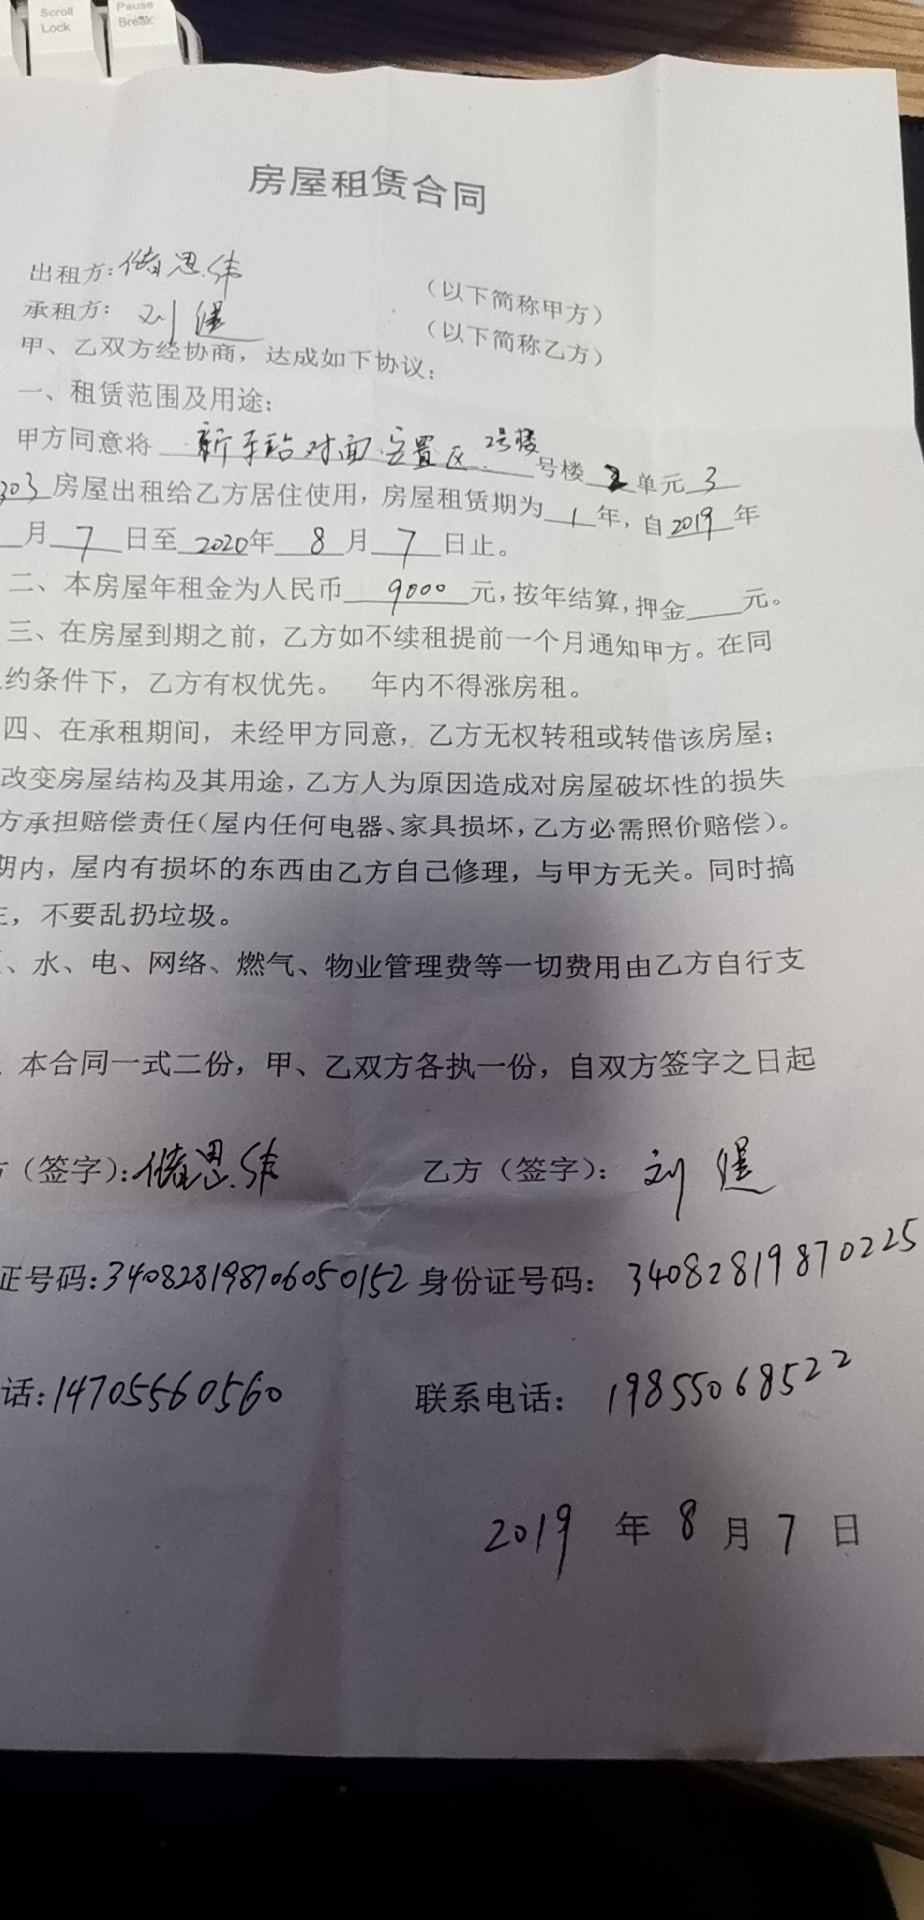 Scroll Lock
Pause Break
房屋租赁合同
出租方：储思伟
（以下简称甲方）
承租方：刘健
（以下简称乙方）
甲、乙双方经协商，达成如下协议：
一、租赁范围及用途：
甲方同意将 新车站对面安置区 2号楼 号楼 2 单元 3
303 房屋出租给乙方居住使用，房屋租赁期为 1 年，自 2019 年
月 7 日至 2020年 8 月 7 日止。
二、本房屋年租金为人民币 9000 元，按年结算，押金 元。
三、在房屋到期之前，乙方如不续租提前一个月通知甲方。在同
约条件下，乙方有权优先。 年内不得涨房租。
四、在承租期间，未经甲方同意，乙方无权转租或转借该房屋；
改变房屋结构及其用途，乙方人为原因造成对房屋破坏性的损失
方承担赔偿责任（屋内任何电器、家具损坏，乙方必需照价赔偿）。
期内，屋内有损坏的东西由乙方自己修理，与甲方无关。同时搞
，不要乱扔垃圾。
、水、电、网络、燃气、物业管理费等一切费用由乙方自行支
本合同一式二份，甲、乙双方各执一份，自双方签字之日起
方（签字）：储思伟 乙方（签字）：刘健
证号码：340828198706050152 身份证号码：34082819870225
话：14705560560 联系电话：19855068522
2019 年 8 月 7 日